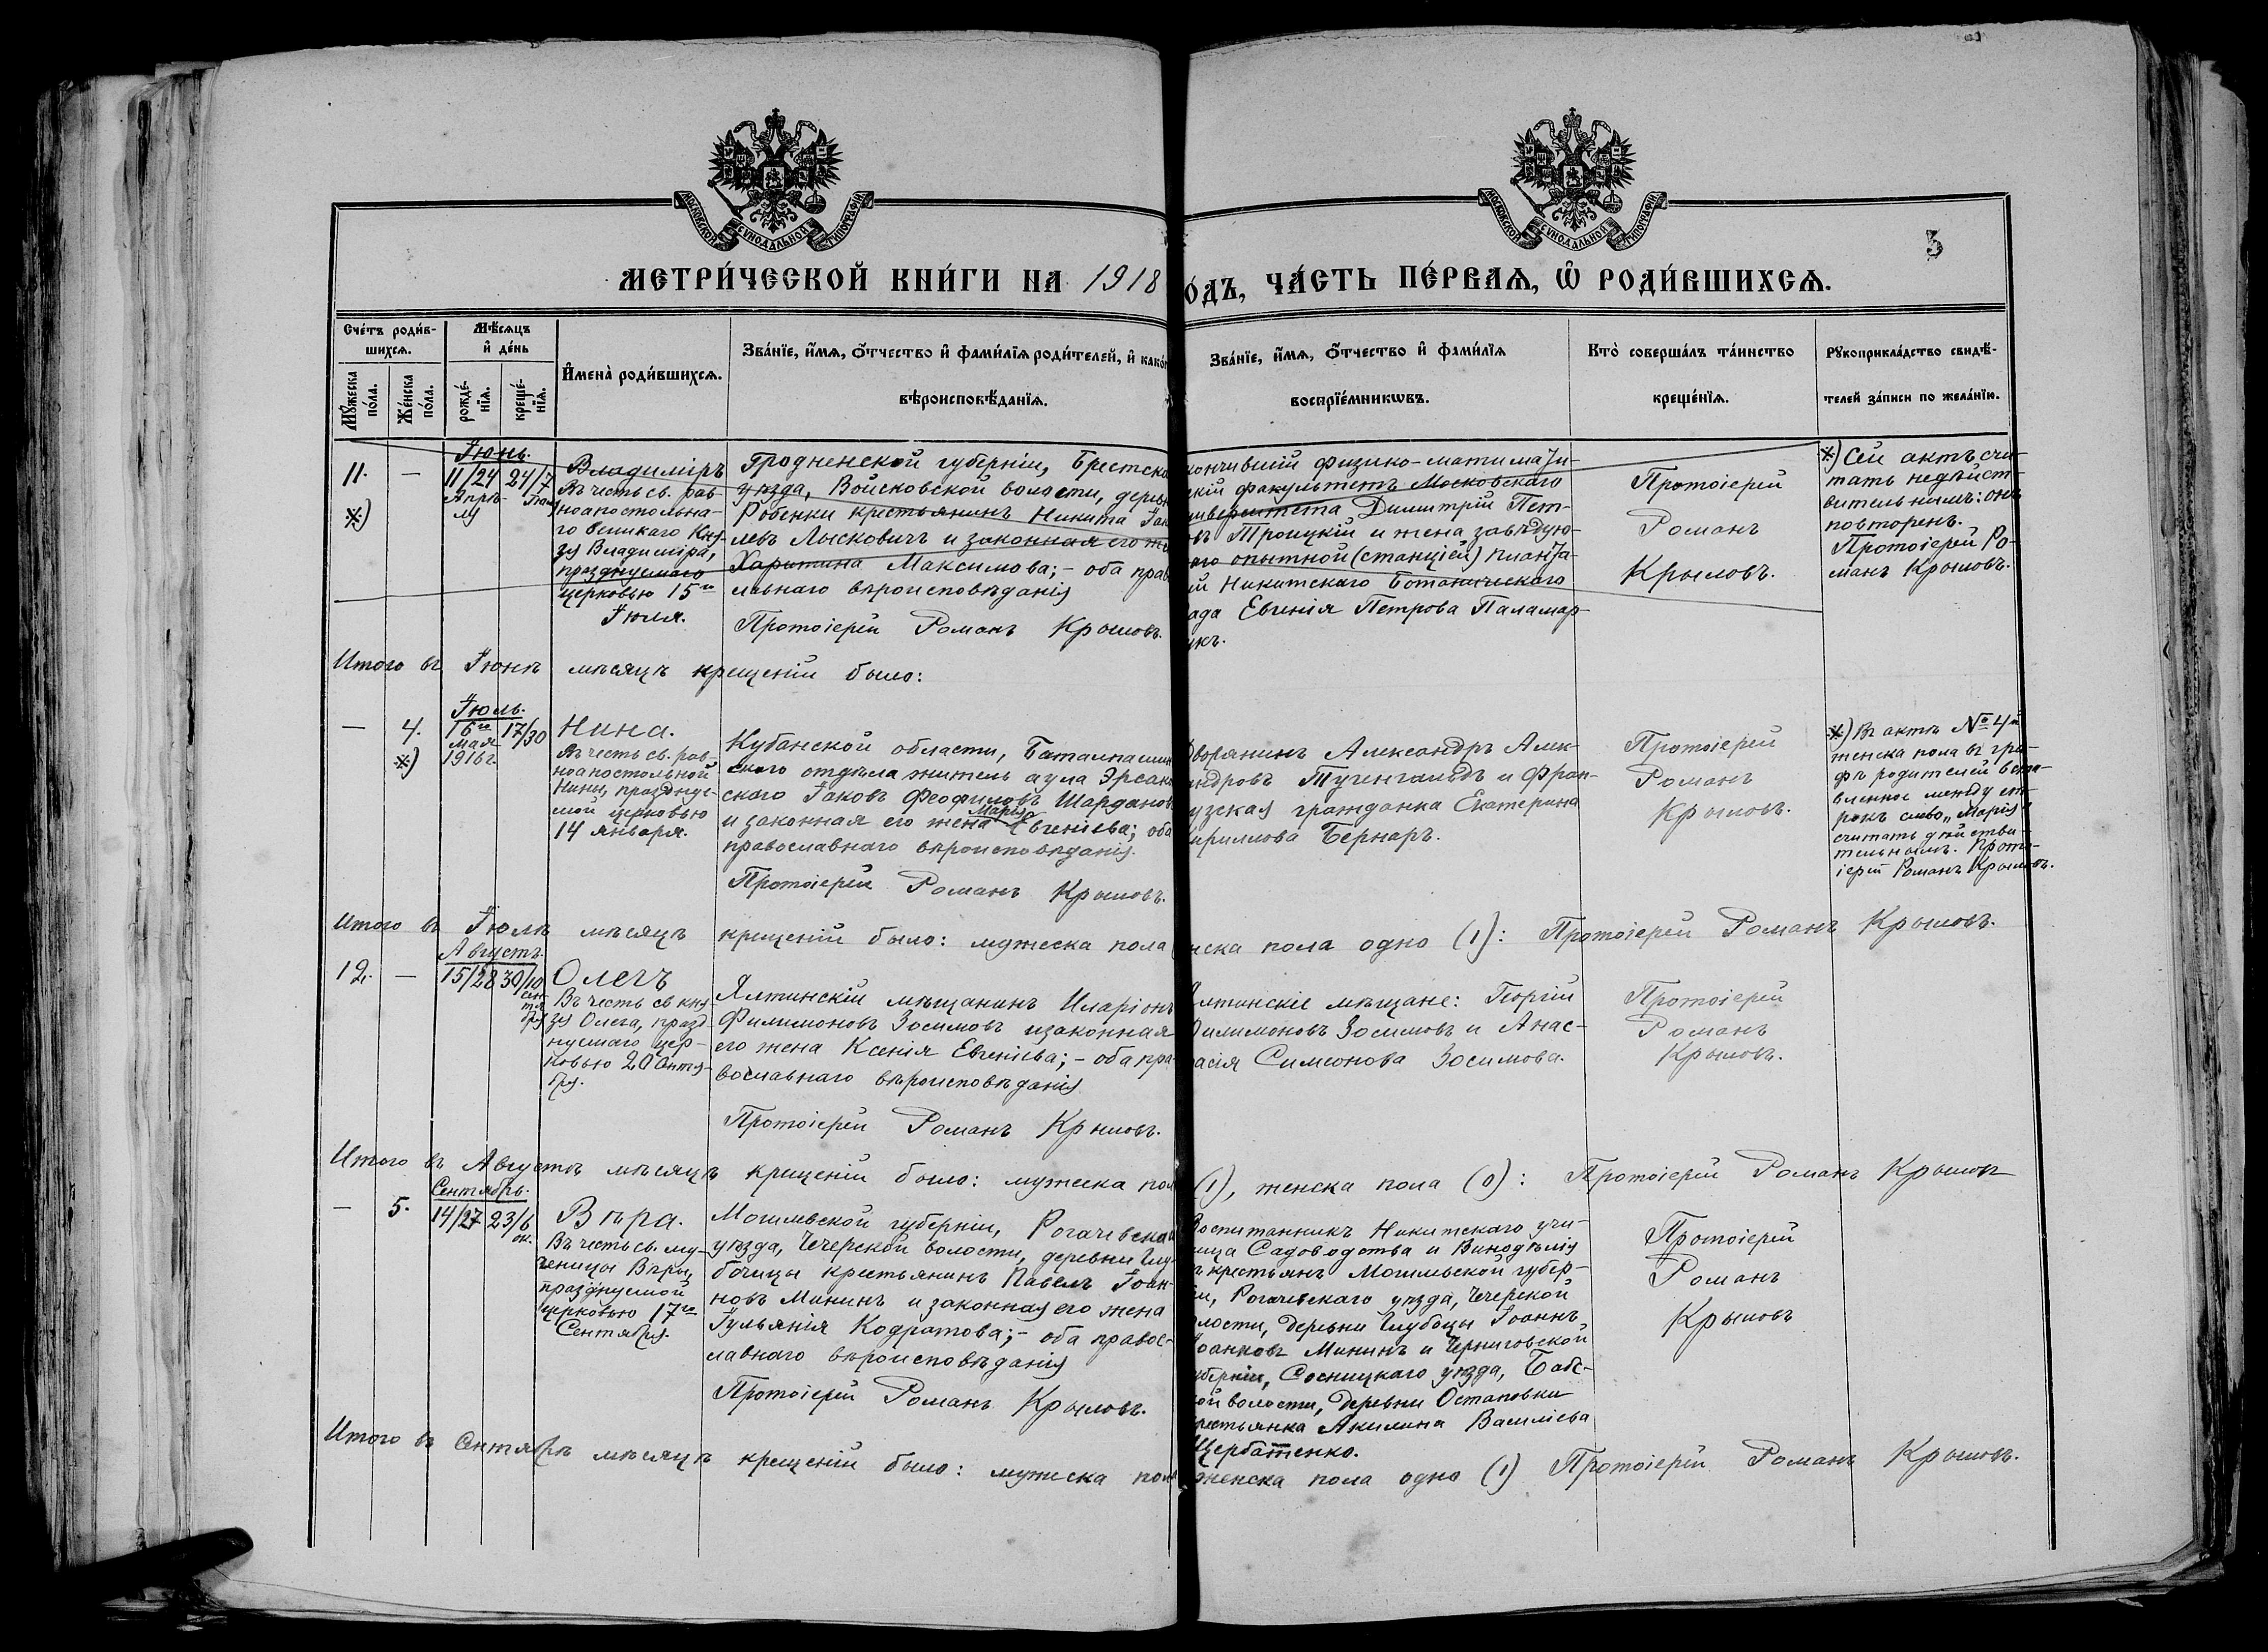 МОСКОВСКОЙ СѴНОДАЛЬНОЙ ТИПОГРАФІИ
МОСКОВСКОЙ СѴНОДАЛЬНОЙ ТИПОГРАФІИ
3
МЕТРИ́ЧЕСКОЙ КНИ́ГИ НА 1918
О́ДЪ, ЧА́СТЬ ПЕ́РВАѦ, Ѡ҆ РОДИ́ВШИХСѦ.
Сче́тъ роди́в-
шихсѧ.
Мѣ́сѧцъ
и҆ де́нь
Мꙋ́жеска
по́ла.
Же́нска
по́ла.
рожде́-
нїѧ.
креще́-
нїѧ.
И҆мена̀ роди́вшихсѧ.
Зва́нїе, и҆́мѧ, ѻ҆́тчество и҆ фами́лїѧ роди́телей, и҆ како́
вѣроисповѣ́данїѧ.
Зва́нїе, и҆́мѧ, ѻ҆́тчество и҆ фами́лїѧ
воспрїе́мникѡвъ.
Кто̀ соверша́лъ та́инство
креще́нїѧ.
Рꙋкоприкла́дство свидѣ́-
телей за́писи по жела́нїю.
Іюнь.
11. — 11/24 24/7
Апрѣ-
ля
Іюля
※)
Владиміръ
Въ честь св. рав-
ноапостольна-
го великаго Кня-
зя Владиміра,
празднуемаго
церковью 15го
Іюля.
Гродненской губерніи, Брестска
уѣзда, Войсковской волости, дерев
Робенки крестьянинъ Никита Іак
левъ Лысковичъ и законная его же
Харитина Максимова; – оба прав
лавнаго вѣроисповѣданія
Протоіерей Романъ Крыловъ.
кончившій физико-матимати-
скій факультетъ Московскаго
ниверситета Димитрій Пет-
овъ Троицкій и жена завѣдую-
аго опытной (станціей) планта-
ій Никитскаго Ботаническаго
ада Евгенія Петрова Паламар-
укъ.
Протоіерей
Романъ
Крыловъ.
※) Сей актъ счи-
тать недѣйст-
вительнымъ: онъ
повторенъ.
Протоіерей Ро-
манъ Крыловъ.
Итого въ Іюнѣ мѣсяцѣ крещеній было:
Іюль.
— 4. 16го 17/30
мая
1916 г.
※)
Нина.
Въ честь св. рав-
ноапостольной
Нины, праздну-
мой церковью
14 января.
Кубанской области, Баталпашин
скаго отдѣла житель аула Эрсако
скаго Іаковъ Феофиловъ Шарданов
Марія
и законная его жена Евгеніева; оба
православнаго вѣроисповѣданія.
Протоіерей Романъ Крыловъ.
Дворянинъ Александръ Алек-
ндровъ Тугенгольдъ и Фран-
узская гражданка Екатерина
Кириллова Бернаръ.
Протоіерей
Романъ
Крыловъ.
※) Въ актѣ № 4й
женска пола въ гра-
фѣ родителей встав-
вленное между ст-
рокъ слово „Марія"
считать дѣйстви-
тельнымъ. Прото-
іерей Романъ Крыловъ.
Итого въ Іюлѣ мѣсяцѣ крещеній было: мужеска пола
нска пола одно (1): Протоіерей Романъ Крыловъ.
Августъ.
12. — 15/28 30/10
сен-
тя-
бря
Олегъ
Въ честь св кня-
зя Олега, празд-
нуемаго цер-
ковью 20 Сентя-
бря.
Ялтинскій мѣщанинъ Иларіонъ
Филимоновъ Зосимовъ и законная
его жена Ксенія Евгеніева; – оба пра-
вославнаго вѣроисповѣданія
Протоіерей Романъ Крыловъ.
Ялтинскіе мѣщане: Георгій
Филимоновъ Зосимовъ и Анас-
тасія Симеонова Зосимова.
Протоіерей
Романъ
Крыловъ.
Итого въ Августѣ мѣсяцѣ крещеній было: мужеска пол
(1), женска пола (0): Протоіерей Романъ Крыловъ
Сентябрь.
— 5. 14/27 23/6
ок.
Вѣра.
Въ честь св. му-
ченицы Вѣры,
празднуемой
церковью 17го
Сентября.
Могилевской губерніи, Рогачевска
уѣзда, Чечерской волости, деревни Глу-
бочицы крестьянинъ Павелъ Іоан-
новъ Мининъ и законная его жена
Іульянія Кодратова; – оба правос-
лавнаго вѣроисповѣданія
Протоіерей Романъ Крыловъ.
Воспитанникъ Никитскаго учи-
лища Садоводства и Винодѣлія
ъ крестьянъ Могилевской губер-
іи, Рогачевскаго уѣзда, Чечерской
олости, деревни Глубоцы Іоаннъ
Іоанновъ Мининъ и Черниговской
уберніи, Сосницкаго уѣзда, Бабс-
ой волости, деревни Остаповки
рестьянка Акилина Василіева
Щербатенко.
Протоіерей
Романъ
Крыловъ
Итого въ Сентябрѣ мѣсяцѣ крещеній было: мужеска пол
женска пола одно (1) Протоіерей Романъ Крыловъ.